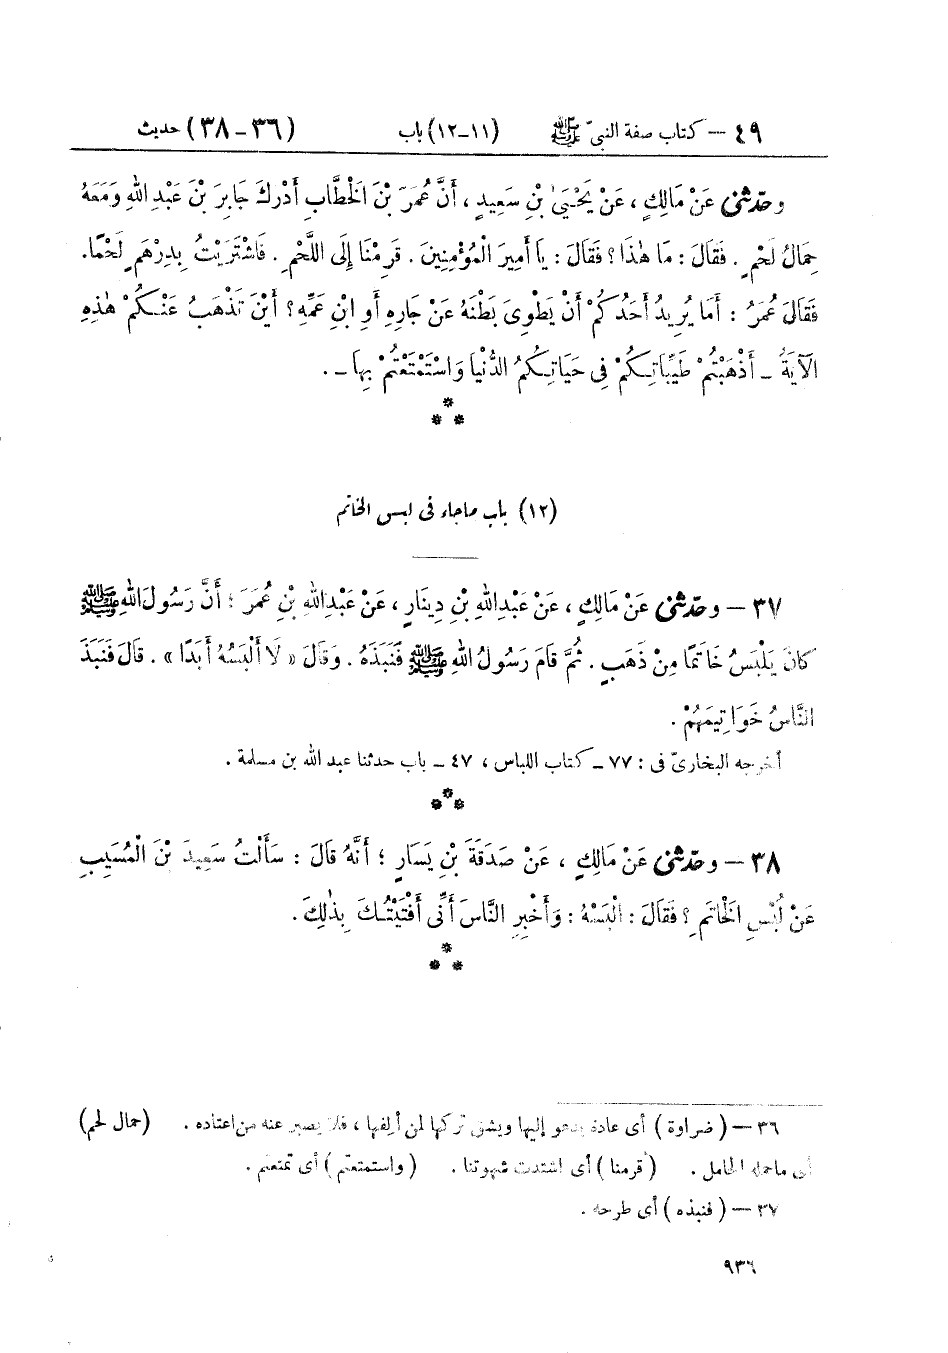 ٤٩ – كتاب صفة النبيّ ﷺ (١١–١٢) باب (٣٦–٣٨) حديث
وحدّثنى عَنْ مَالِكٍ ، عَنْ يَحْيَىٰ بْنِ سَعِيدٍ ، أَنَّ عُمَرَ بْنَ الْخَطَّابِ أَدْرَكَ جَابِرَ بْنَ عَبْدِ اللهِ وَمَعَهُ
حِمَالُ لَحْمٍ . فَقَالَ : مَا هٰذَا ؟ فَقَالَ : يَا أَمِيرَ الْمُؤْمِنِينَ . قَرِمْنَا إِلَى اللَّحْمِ . فَاشْتَرَيْتُ بِدِرْهَمٍ لَحْمًا .
فَقَالَ عُمَرُ : أَمَا يُرِيدُ أَحَدُكُمْ أَنْ يَطْوِىَ بَطْنَهُ عَنْ جَارِهِ أَوِ ابْنِ عَمِّهِ ؟ أَيْنَ تَذْهَبُ عَنْكُمْ هٰذِهِ
الآيَةُ – أَذْهَبْتُمْ طَيِّبَاتِكُمْ فِى حَيَاتِكُمُ الدُّنْيَا وَاسْتَمْتَعْتُمْ بِهَا – .
*
* *
(١٢) باب ماجاء فى لبس الخاتم
٣٧ – وحدّثنى عَنْ مَالِكٍ ، عَنْ عَبْدِ اللهِ بْنِ دِينَارٍ ، عَنْ عَبْدِ اللهِ بْنِ عُمَرَ ؛ أَنَّ رَسُولَ اللهِ ﷺ
كَانَ يَلْبَسُ خَاتَمًا مِنْ ذَهَبٍ . ثُمَّ قَامَ رَسُولُ اللهِ ﷺ فَنَبَذَهُ . وَقَالَ « لَا أَلْبَسُهُ أَبَدًا » . قَالَ فَنَبَذَ
النَّاسُ خَوَاتِيمَهُمْ .
أخرجه البخارىّ فى : ٧٧ – كتاب اللباس ، ٤٧ – باب حدثنا عبد الله بن مسلمة .
*
* *
٣٨ – وحدّثنى عَنْ مَالِكٍ ، عَنْ صَدَقَةَ بْنِ يَسَارٍ ؛ أَنَّهُ قَالَ : سَأَلْتُ سَعِيدَ بْنَ الْمُسَيِّبِ
عَنْ لُبْسِ الْخَاتَمِ ؟ فَقَالَ : الْبَسْهُ : وَأَخْبِرِ النَّاسَ أَنِّى أَفْتَيْتُكَ بِذٰلِكَ .
*
* *
٣٦ – (ضراوة) أى عادة يدعو إليها ويشق تركها لمن ألفها ، فلا يصبر عنه من اعتاده . (حمال لحم)
أى ماحمله الحامل . (قرمنا) أى اشتدت شهوتنا . (واستمتعتم) أى تمتعتم .
٣٧ – (فنبذه) أى طرحه .
٩٣٦